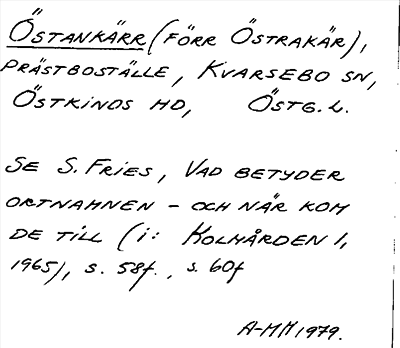 ÖSTANKÄRR (FÖRR ÖSTRAKÄR),
PRÄSTBOSTÄLLE, KVARSEBO SN,
ÖSTKINDS HD, ÖSTG. L.
SE S. FRIES, VAD BETYDER
ORTNAMNEN - OCH NÄR KOM
DE TILL (i: KOLMÅRDEN 1,
1965), s. 58f., s. 60f
A-MM 1979.